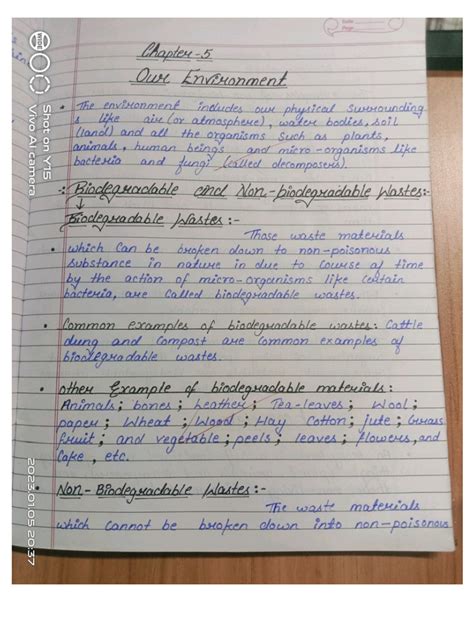 Date
Page
Chapter-5
Our Environment
• The environment includes our physical surrounding
s like air (or atmosphere), water bodies, soil
(land) and all the organisms such as plants,
animals, human beings and micro-organisms like
bacteria and fungi (called decomposers).
-: Biodegradable and Non-biodegradable Wastes:-
Biodegradable Wastes :-
Those waste materials
• which can be broken down to non-poisonous
substance in nature in due to course of time
by the action of micro-organisms like certain
bacteria, are called biodegradable wastes.
• Common examples of biodegradable wastes: Cattle
dung and Compost are common examples of
biodegradable wastes.
• Other Example of biodegradable materials:
Animals; bones; Leather; Tea-leaves; Wool;
paper; Wheat; Wood; Hay Cotton; jute; Grass
fruit; and vegetable; peels; leaves; flowers, and
Cake, etc.
• Non-Biodegradable Wastes :-
The waste materials
which cannot be broken down into non-poisonous
Shot on Y15
Vivo AI camera
2023.01.05 20:37